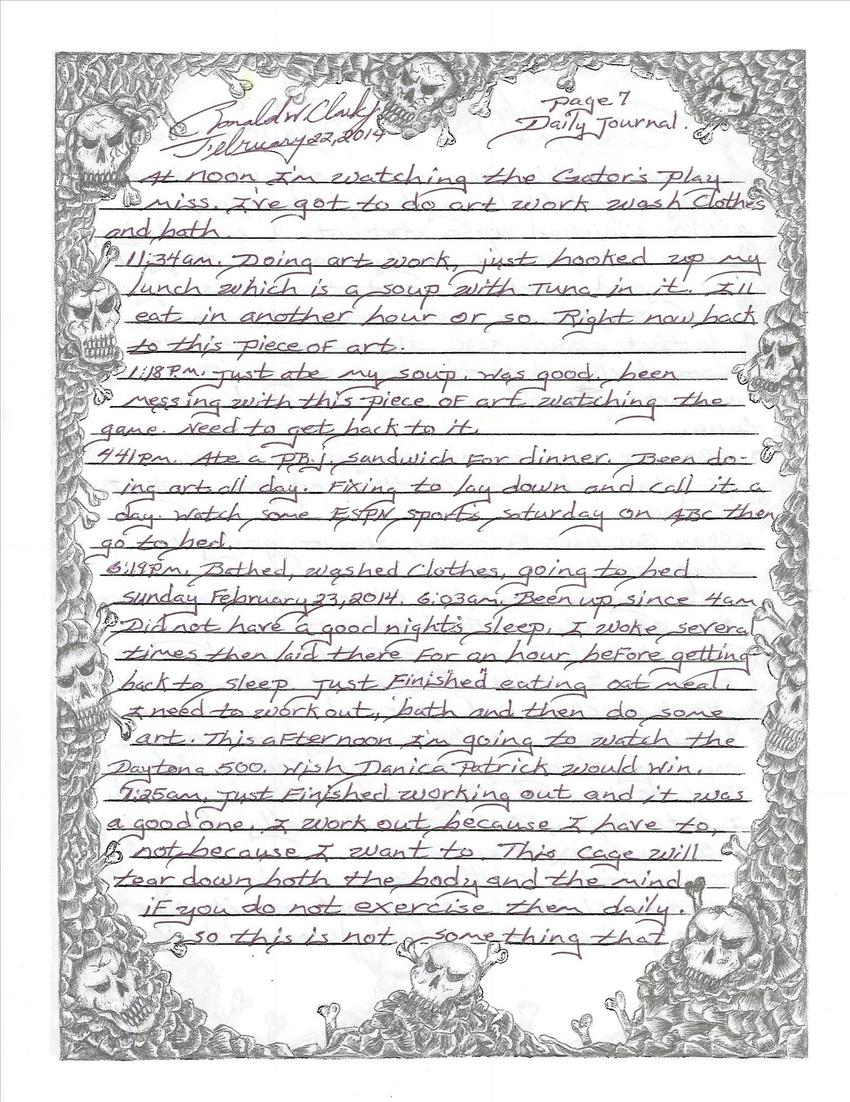 Ronald W. Clark Jr
page 7
February 22, 2014
Daily Journal.
At noon I'm watching the Gator's play
miss. I've got to do art work wash Clothes
and bath.
11:34am. Doing art work, just hooked up my
lunch which is a soup with Tuna in it. I'll
eat in another hour or so. Right now back
to this piece of art.
1:18 P.m. Just ate my soup. Was good. been
messing with this piece of art watching the
game. Need to get back to it.
441pm. Ate a PB.j. sandwich For dinner. Been do-
ing art all day. Fixing to lay down and call it a
day. Watch some ESPN sports saturday on ABC then
go to bed.
6:19P.m. Bathed, washed Clothes, going to bed
Sunday February 23, 2014. 6:03am. Been up since 4am
Did not have a good night's sleep. I woke several
times then laid there For an hour before getting
back to sleep. Just Finished eating oat meal.
I need to work out, bath and then do some
art. This aFternoon I'm going to watch the
Daytona 500. Wish Danica Patrick would win.
9:25am. Just Finished working out and it was
a good one. I work out because I have to,
not because I want to. This cage will
tear down both the body and the mind
iF you do not exercise them daily.
so this is not something that